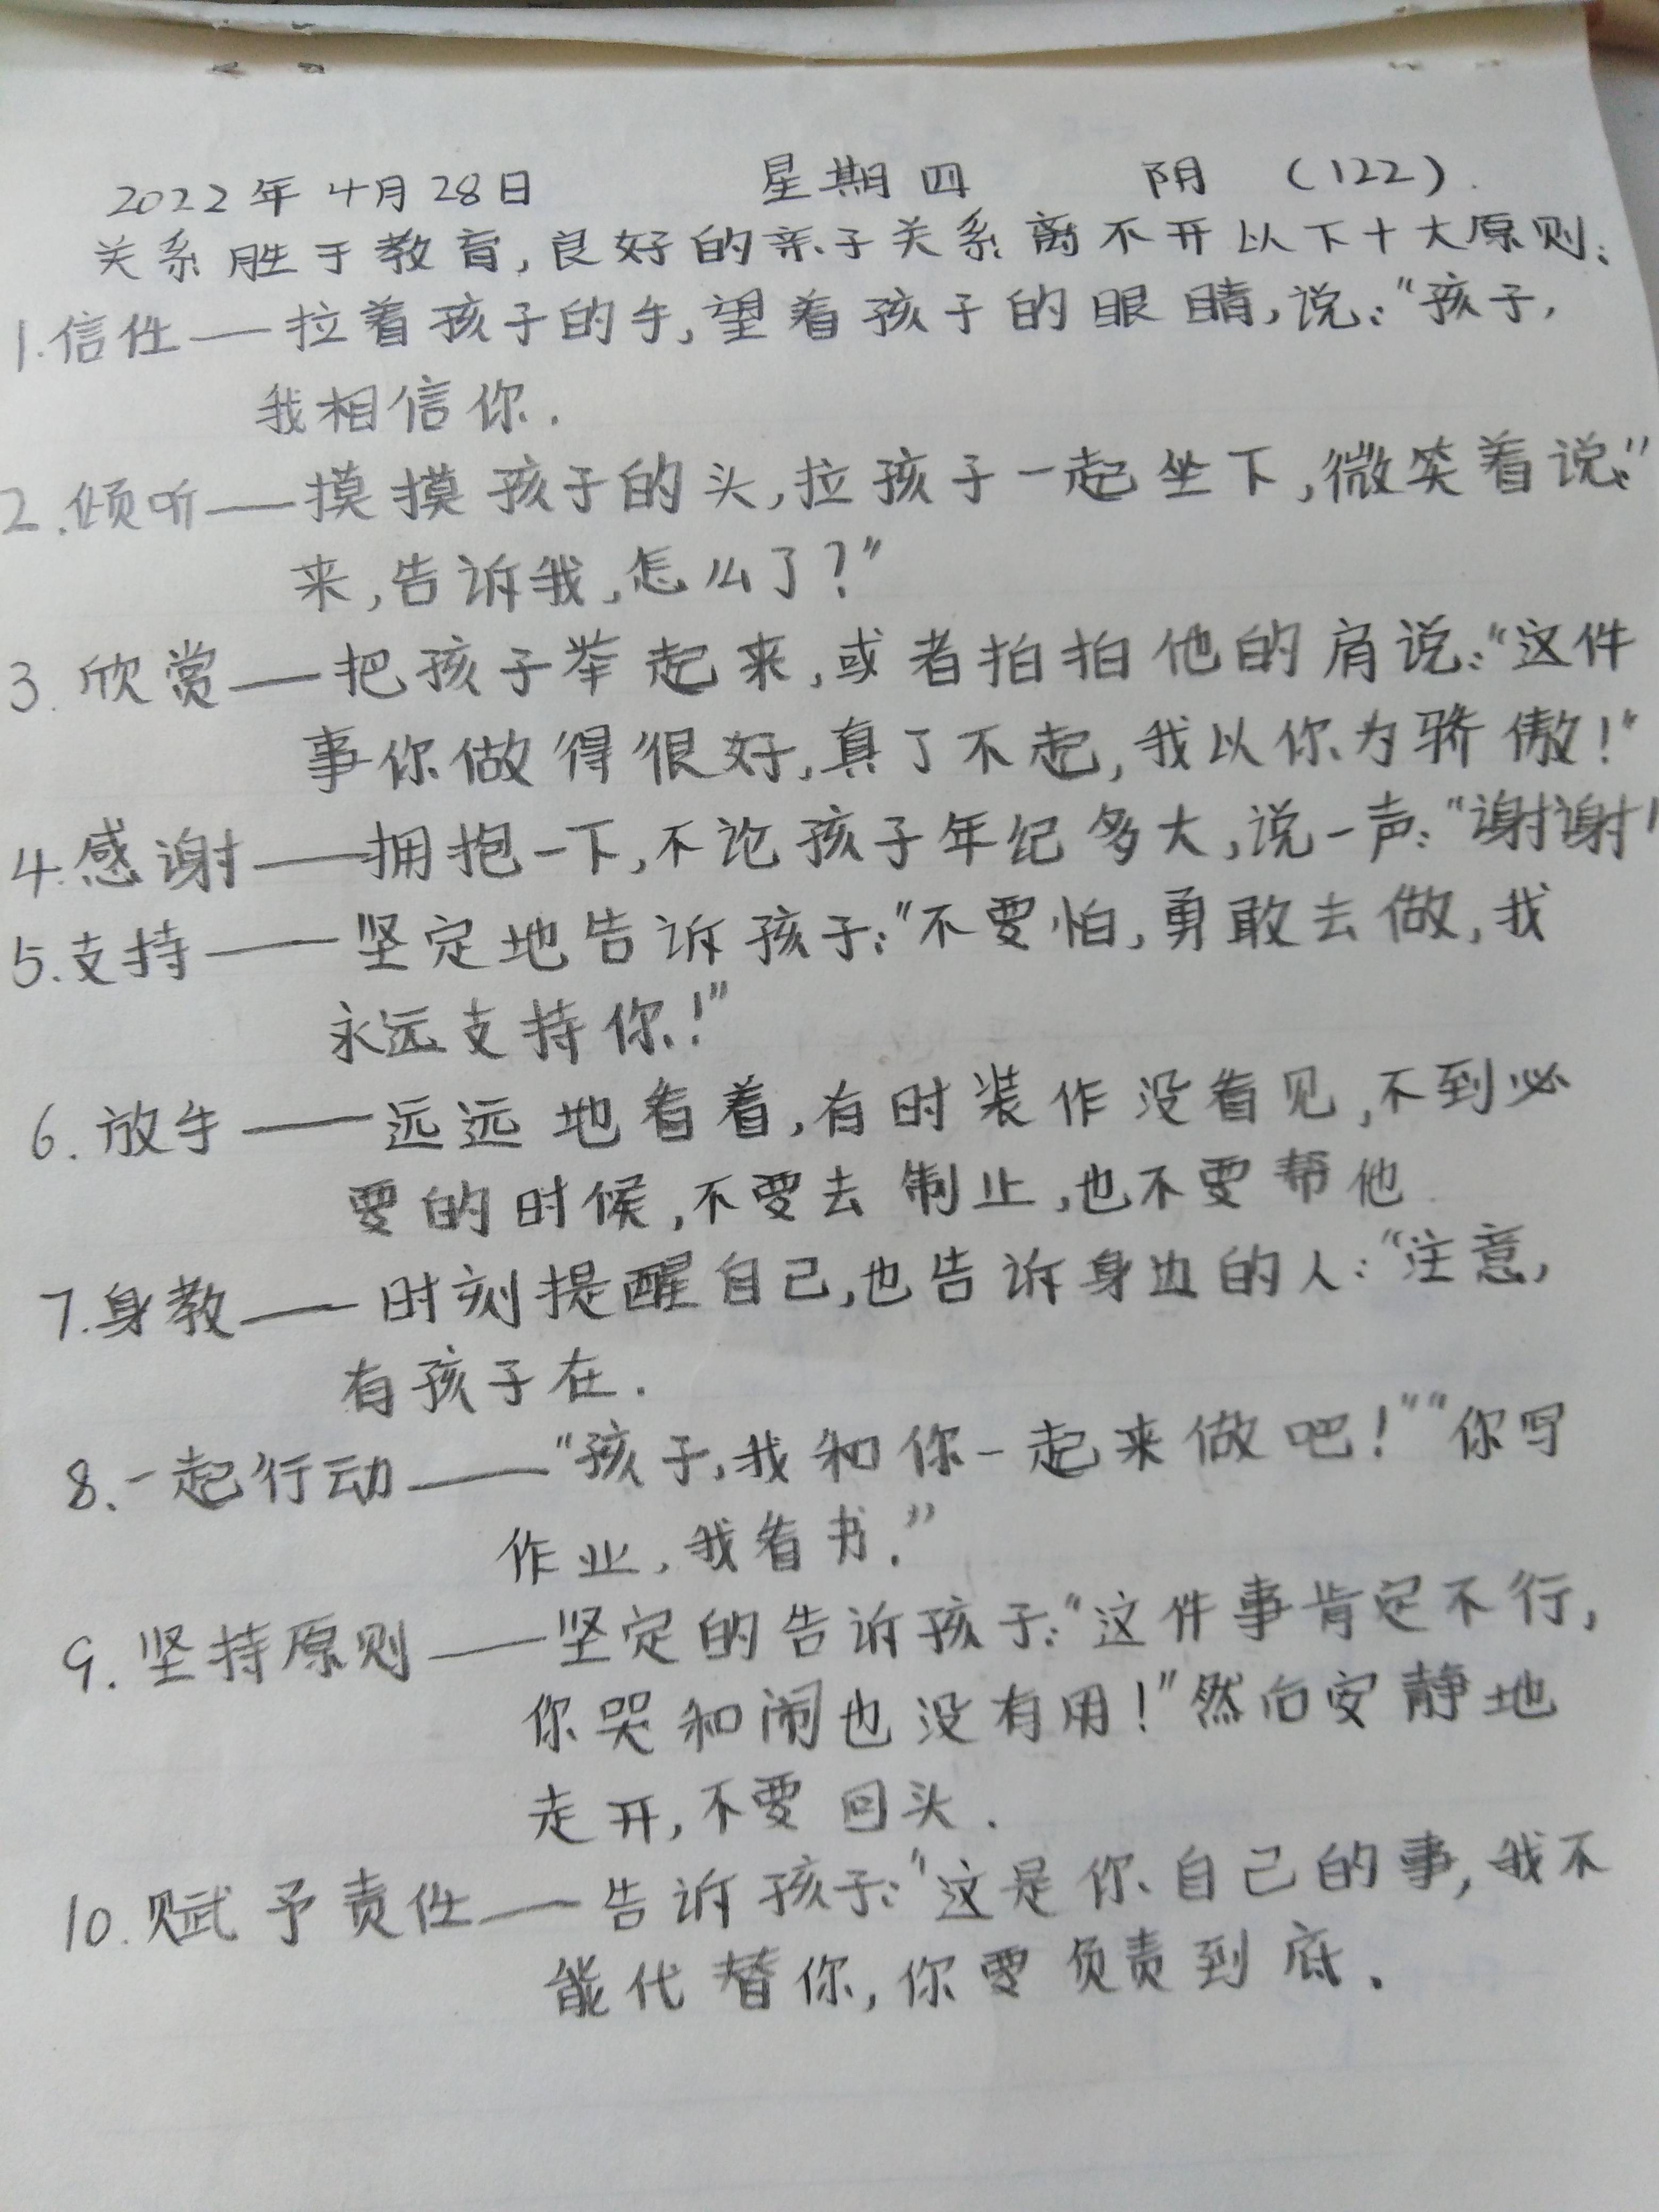 2022年4月28日 星期四 阴 (122).
关系胜于教育,良好的亲子关系离不开以下十大原则:
1.信任——拉着孩子的手,望着孩子的眼睛,说:"孩子,
我相信你.
2.倾听——摸摸孩子的头,拉孩子一起坐下,微笑着说:"
来,告诉我,怎么了?"
3.欣赏——把孩子举起来,或者拍拍他的肩说:"这件
事你做得很好,真了不起,我以你为骄傲!"
4.感谢——拥抱一下,不论孩子年纪多大,说一声:"谢谢!
5.支持——坚定地告诉孩子:"不要怕,勇敢去做,我
永远支持你!"
6.放手——远远地看着,有时装作没看见,不到必
要的时候,不要去制止,也不要帮他.
7.身教——时刻提醒自己,也告诉身边的人:"注意,
有孩子在.
8.一起行动——"孩子,我和你一起来做吧!""你写
作业,我看书."
9.坚持原则——坚定的告诉孩子:"这件事肯定不行,
你哭和闹也没有用!"然后安静地
走开,不要回头.
10.赋予责任——告诉孩子:"这是你自己的事,我不
能代替你,你要负责到底.